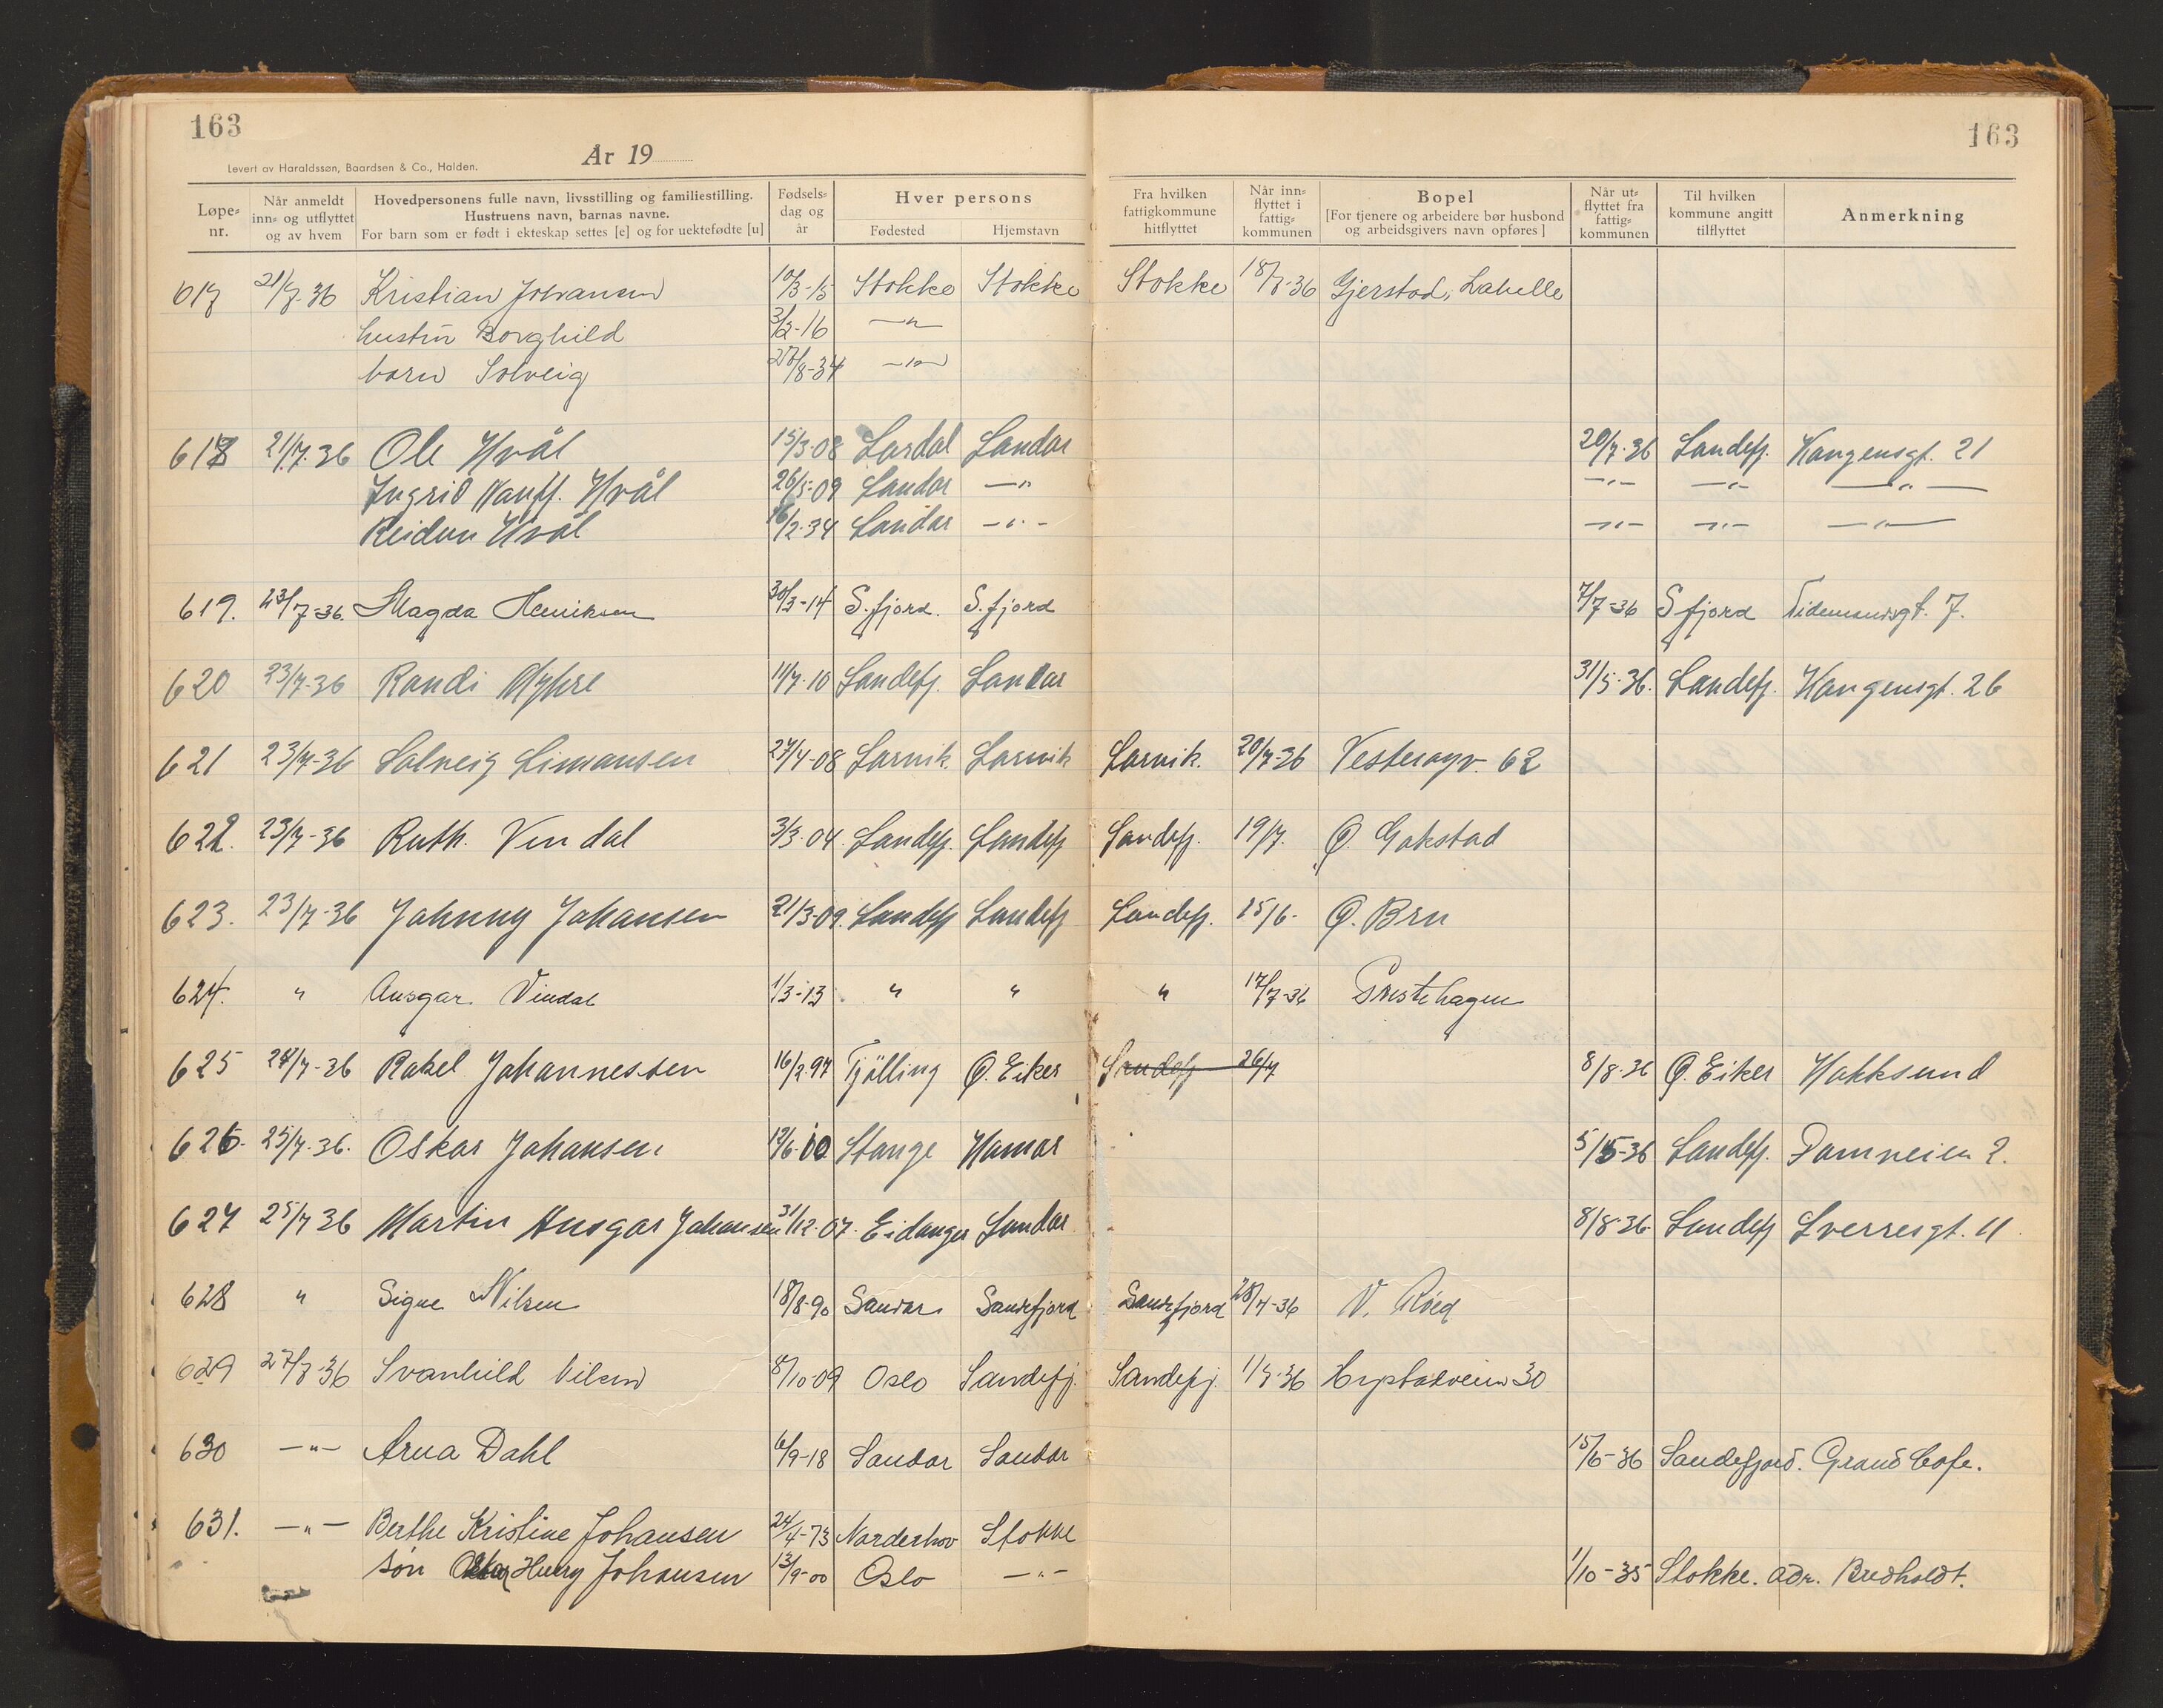 163
163
Levert av Haraldssøn, Baardsen & Co., Halden.
År 19
Løpe-nr.
Når anmeldt inn- og utflyttet og av hvem
Hovedpersonens fulle navn, livsstilling og familiestilling. Hustruens navn, barnas navne. For barn som er født i ekteskap settes [e] og for uektefødte [u]
Fødsels-dag og år
Hver persons
Fødested Hjemstavn
Fra hvilken fattigkommune hitflyttet
Når inn-flyttet i fattig-kommunen
Bopel [For tjenere og arbeidere bør husbond og arbeidsgivers navn opføres]
Når ut-flyttet fra fattig-kommunen
Til hvilken kommune angitt tilflyttet
Anmerkning
617 21/7-36 Kristian Johansen 10/3-15 Stokke Stokke Stokke 18/7-36 Gjerstad, Labelle
hustru Borghild 3/2-16 -"-
barn Solveig 27/8-34 -"-
618 21/7.36 Ole Hvål 15/3-08 Lardal Sandar 20/7-36 Sandefj. Haugensgt. 21
Ingrid Hvål 26/5-09 Sandar -"- -"- -"- -"-
Reidun Hvål 16/2-34 Sandar -"- -"- -"- -"-
619. 23/7-36. Magda Henriksen 30/3-14 S.fjord. S.fjord 7/7-36 S fjord Tidemandsgt. 7.
620 23/7-36 Randi Myhre 11/7-10 Sandefj. Sandar 31/5-36. Sandefj. Haugensgt. 26
621 23/7-36 Solveig Simonsen 27/4-08 Larvik. Larvik Larvik. 20/7-36 Vesterøyv. 62
622. 23/7-36 Ruth. Vindal 3/3-04. Sandefj. Sandefj Sandefj. 19/7. Ø. Gokstad
623. 23/7-36 Johnny Johansen 21/3-09. Sandefj Sandefj Sandefj. 25/6- Ø. Bru
624. " Ansgar. Vindal 1/3-13 " " " 17/7-36 Prestehagen
625 24/7-36 Rakel Johannessen 16/2-97 Tjølling Ø. Eiker Sandefj 26/7 8/8-36 Ø. Eiker Hokksund
626. 25/7-36. Oskar Johansen 12/6-00 Stange Hamar 5/5-36 Sandefj. Damveien 2.
627 25/7 36 Martin Ansgar Johansen 31/12-07. Eidanger Sandar 8/8-36 Sandefj Sverresgt. 11
628 " Signe Nilsen 18/8-90 Sandar. Sandefjord Sandefjord 28/7-36 V. Råed
629 27/7-36 Svanhild Nilsen 8/10-09 Oslo Sandefj. Sandefj. 1/7-36 30
630 -"- Arna Dahl 6/9-18 Sandar Sandar 15/6-36 Sandefjord. Grand Cafe.
631. -"- Berthe Kristine Johansen 24/4-73 Norderhov Stokke
søn Henry Johansen 13/9-00 Oslo -"- 1/10-35 Stokke. adr. Bredholdt.